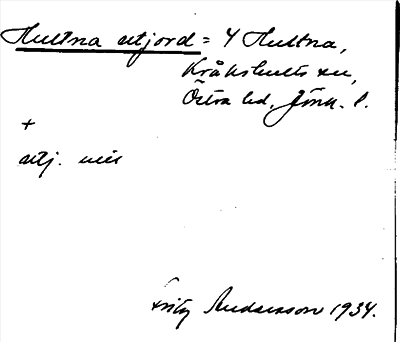 Hultna utjord = 4 Hultna,
Kråkshults sn,
Östra hd, Jönk. l.
+
utj. utis
Fritz Andersson 1934.